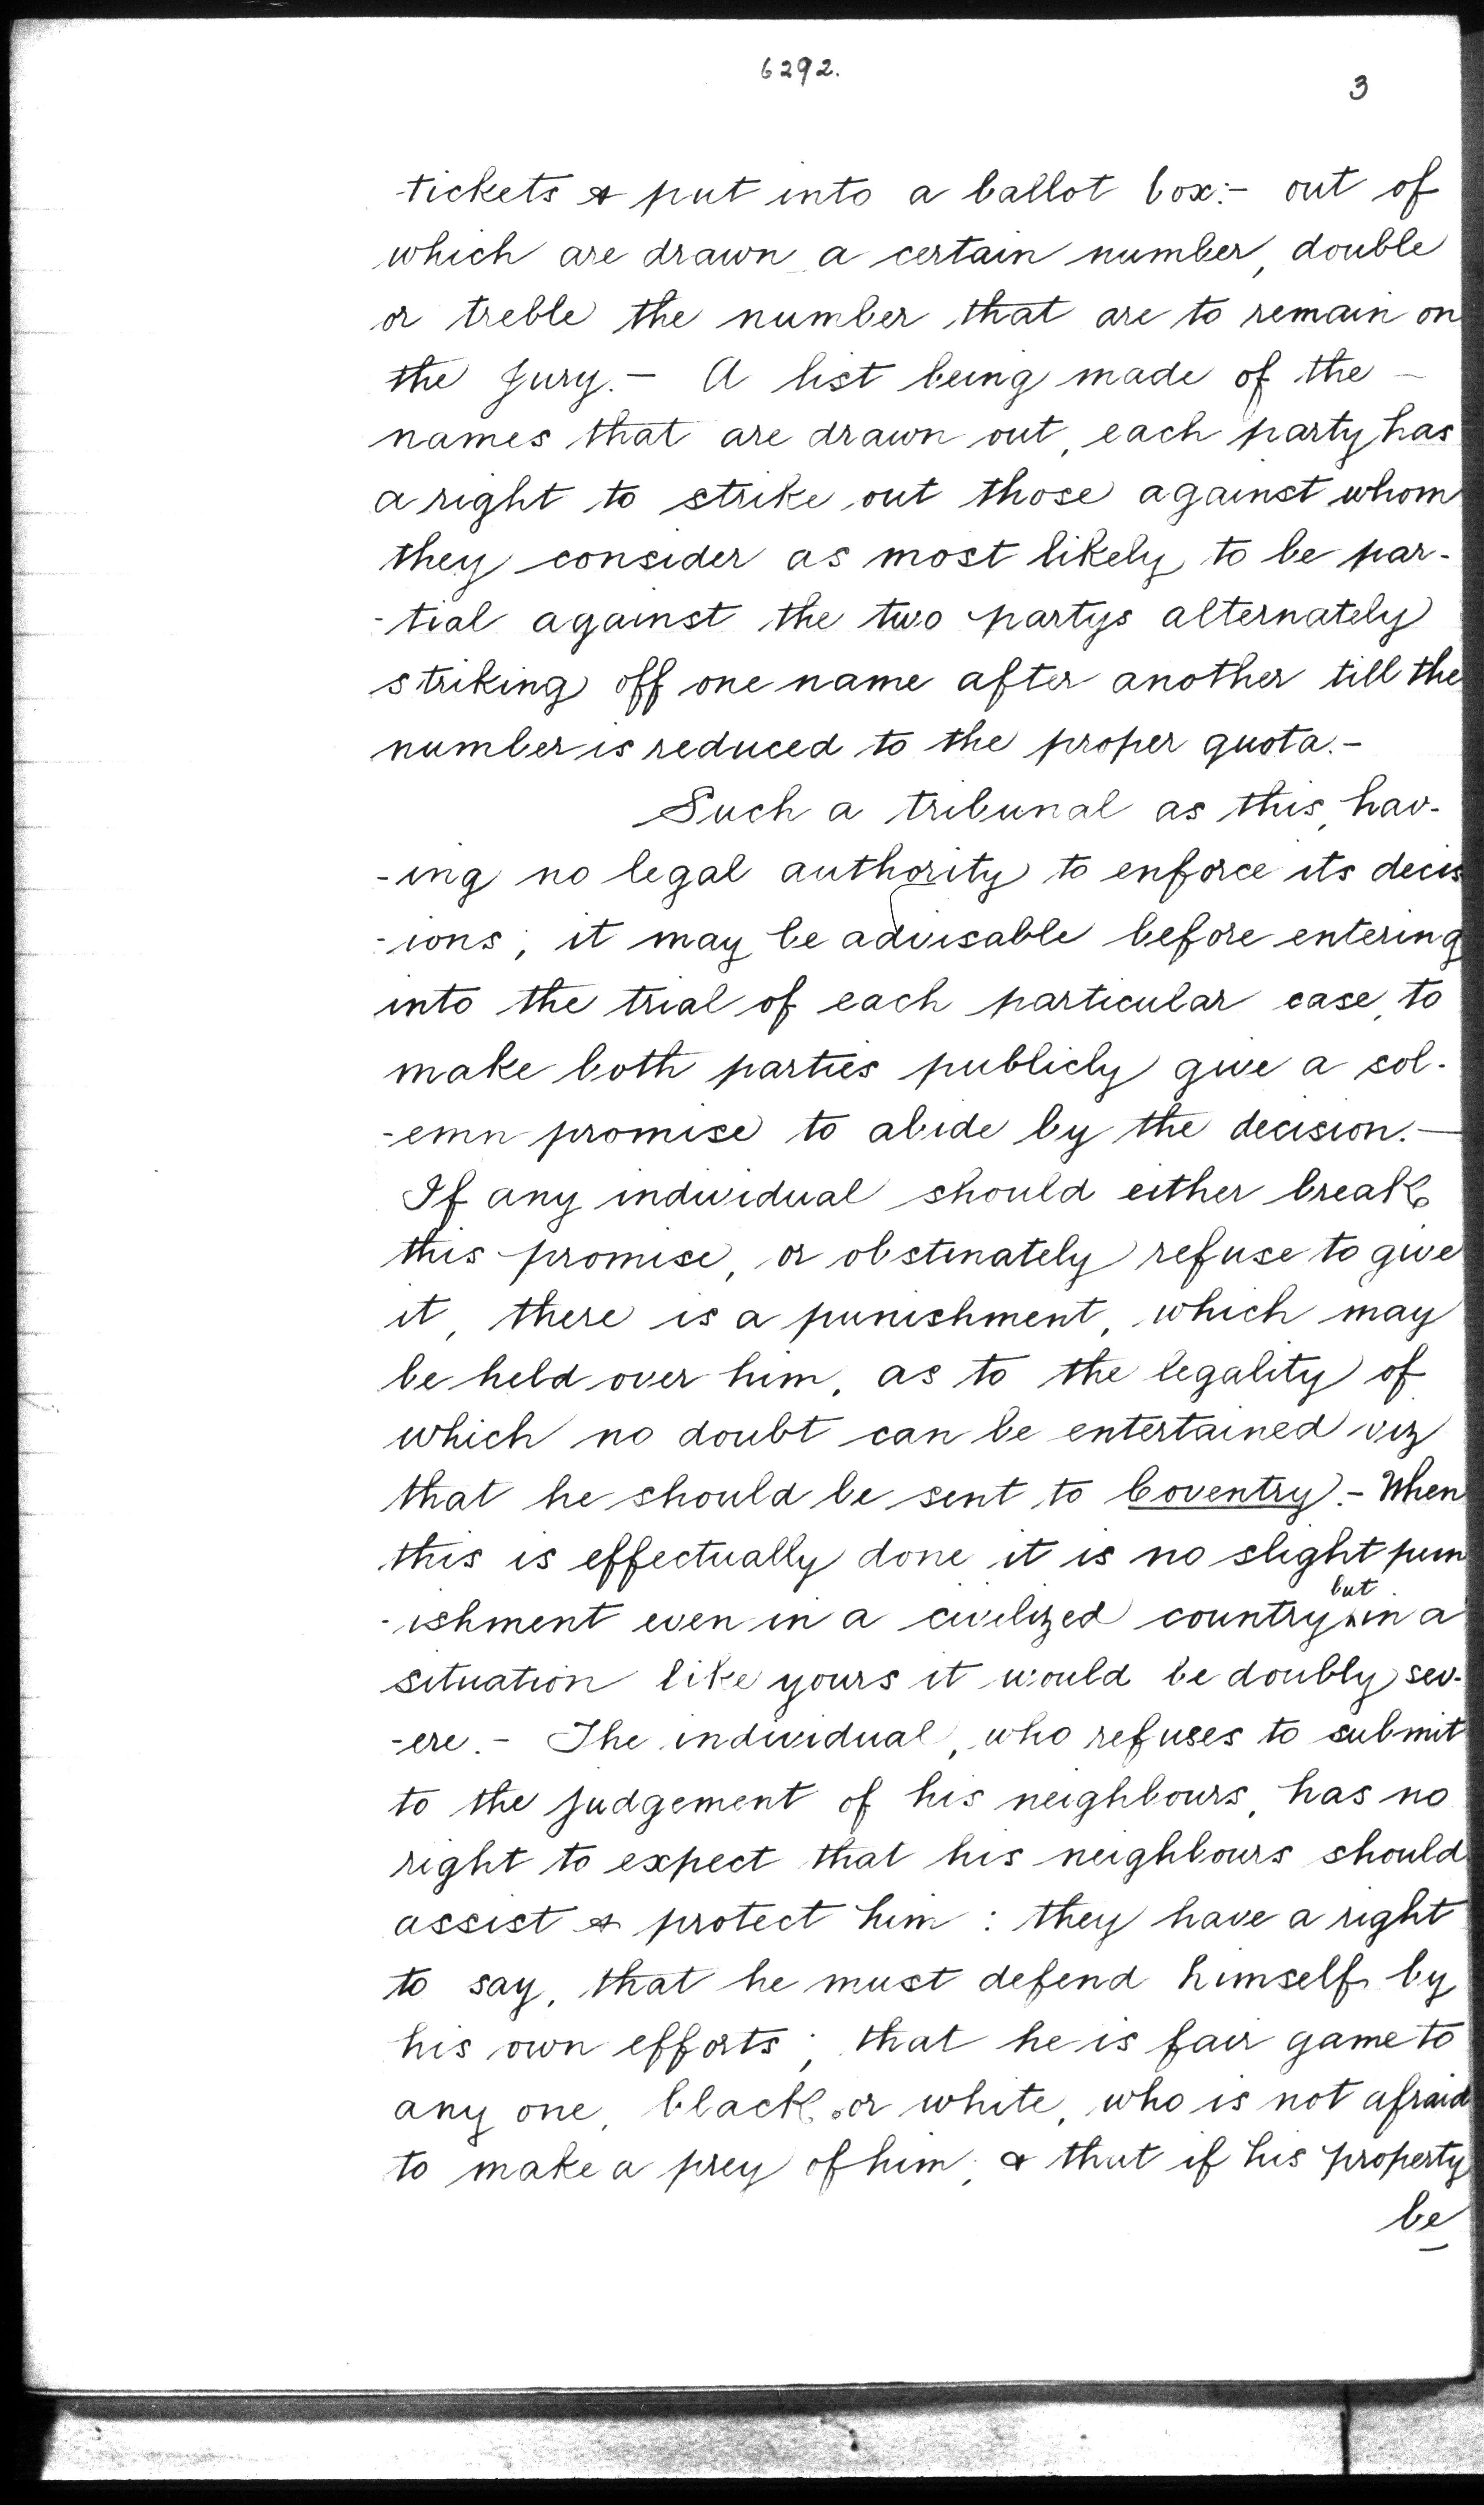 6292.
3
tickets & put into a ballot box:- out of
which are drawn a certain number, double
or treble the number that are to remain on
the Jury.- A list being made of the -
names that are drawn out, each party has
a right to strike out those against whom
they consider as most likely to be par-
-tial against the two partys alternately
striking off one name after another till the
number is reduced to the proper quota.-
Such a tribunal as this, hav-
-ing no legal authority to enforce its decis
-ions; it may be advisable before entering
into the trial of each particular case, to
make both parties publicly give a sol-
-emn promise to abide by the decision.-
If any individual should either break
this promise, or obstinately refuse to give
it, there is a punishment, which may
be held over him, as to the legality of
which no doubt can be entertained viz
that he should be sent to Coventry.- When
this is effectually done it is no slight pun
but
-ishment even in a civilized country in a
situation like yours it would be doubly sev-
-ere.- The individual, who refuses to submit
to the judgement of his neighbours, has no
right to expect that his neighbours should
assist & protect him: they have a right
to say, that he must defend himself by
his own efforts; that he is fair game to
any one, black or white, who is not afraid
to make a prey of him; & that if his property
be